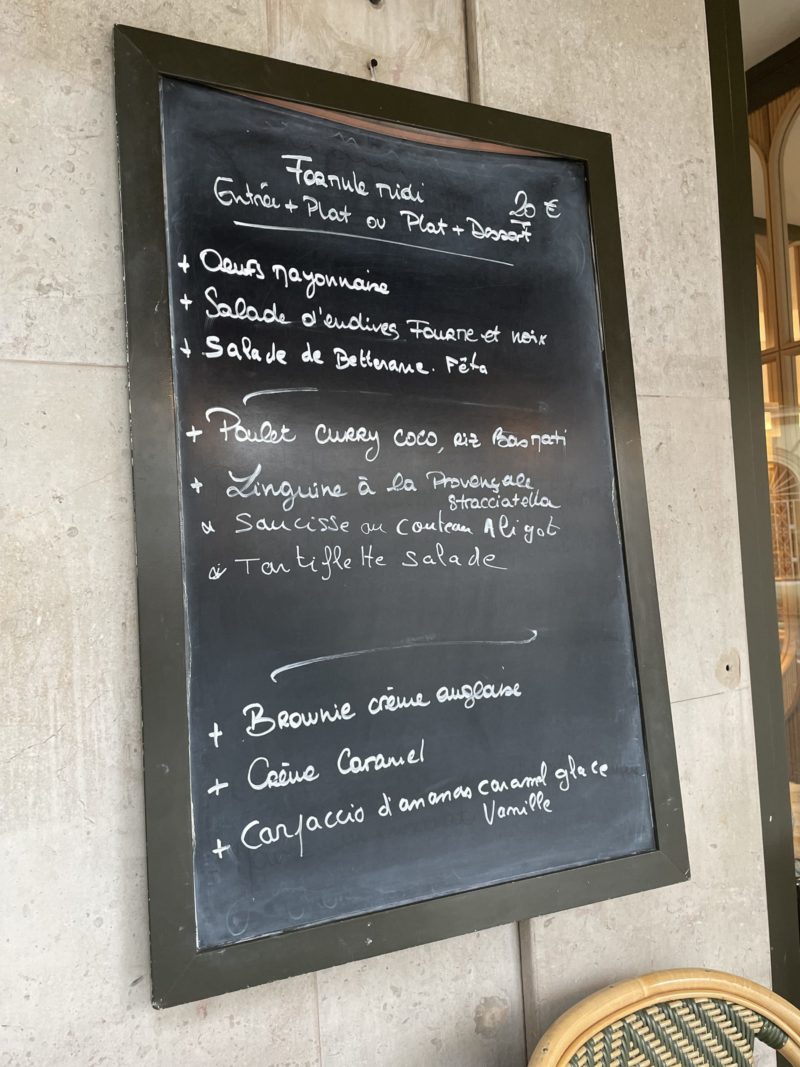 Formule midi
Entrée + Plat ou Plat + Dessert 20 €
+ Oeufs mayonnaise
+ Salade d'endives Fourme et noix
+ Salade de Betterave. Fêta
+ Poulet curry coco, riz Basmati
+ Linguine à la Provençale
stracciatella
Saucisse au couteau Aligot
Tartiflette salade
+ Brownie crème anglaise
+ Crème Caramel
+ Carpaccio d'ananas caramel glace
Vanille